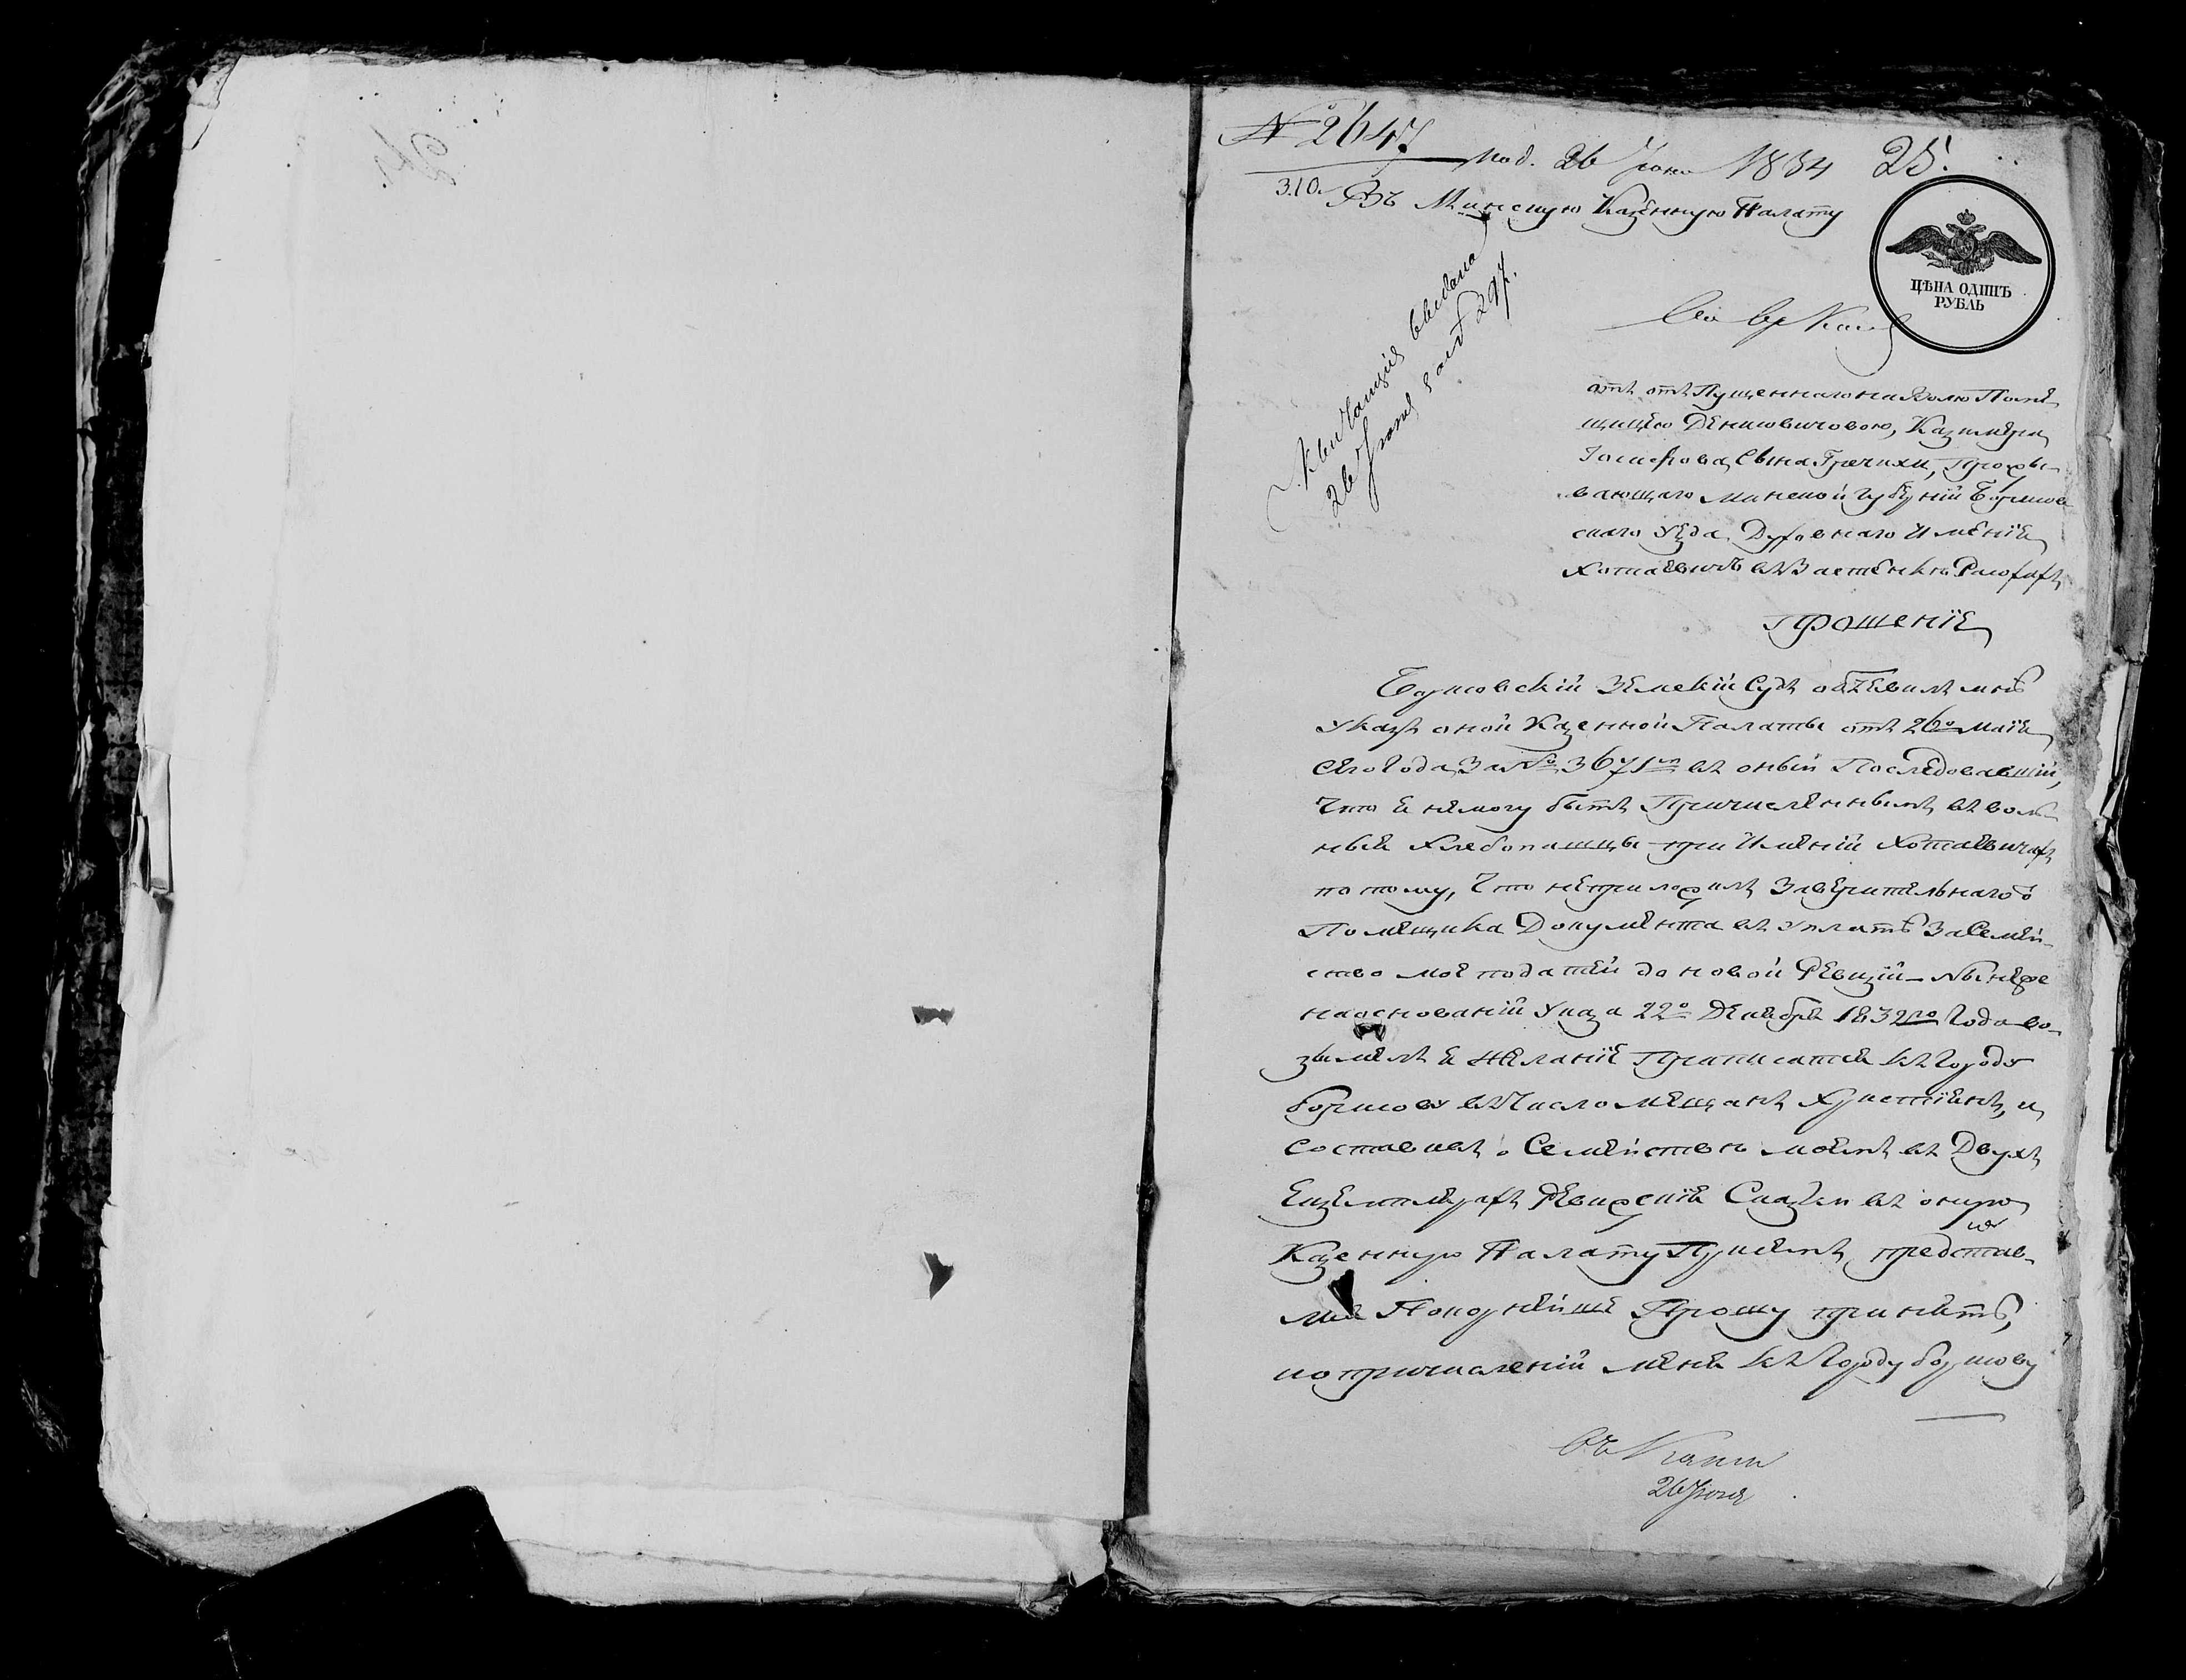 № 2647. под. 26 Іюня 1834 25.
3.10. Въ Минскую Казенную Палату
ЦѢНА ОДИНЪ
РУБЛЬ
Квитанція выдана
26 Іюня за № 297.
отъ отъ Пущеннаго на Волю Помѣ-
щицею Денисовичовою, Казимѣра
Іосифова Сына Гречихи, Прожы-
вающаго Минской губерніи Борисов
скаго уѣзда Духовнаго Имѣнія
Хотаевичъ въ Застенкѣ
Прошеніе
Борисовскій Земскій Судъ объевилъ мнѣ
Указъ оной Казенной Палаты отъ 26го маія
сего года За № 3671мъ въ оный Последовавшій,
Что я немогу быть Причисленнымъ въ воль-
ныя хлебопашцы при Имѣніи Хотаевичахъ
потому, Что неприложилъ Заверительнаго
Помѣщика Документа въ уплатѣ За Семѣй-
ство моё податей до новой Ревизіи - Ныне же
наоснованіи Указа 22го Декабря 1832го Года во-
зымѣлъ я желаніе Приписатся къ городу
борисову въ Число мещанъ Христіянъ, и
составивъ о Семѣйстве моёмъ въ Двухъ
Екземплярахъ Ревижскія Сказки въ оную
Казенную Палату При семъ, представ-
ляя Покорнейше Прошу принять,
и о причисленіи меня къ Городу борисову
26 Іюня